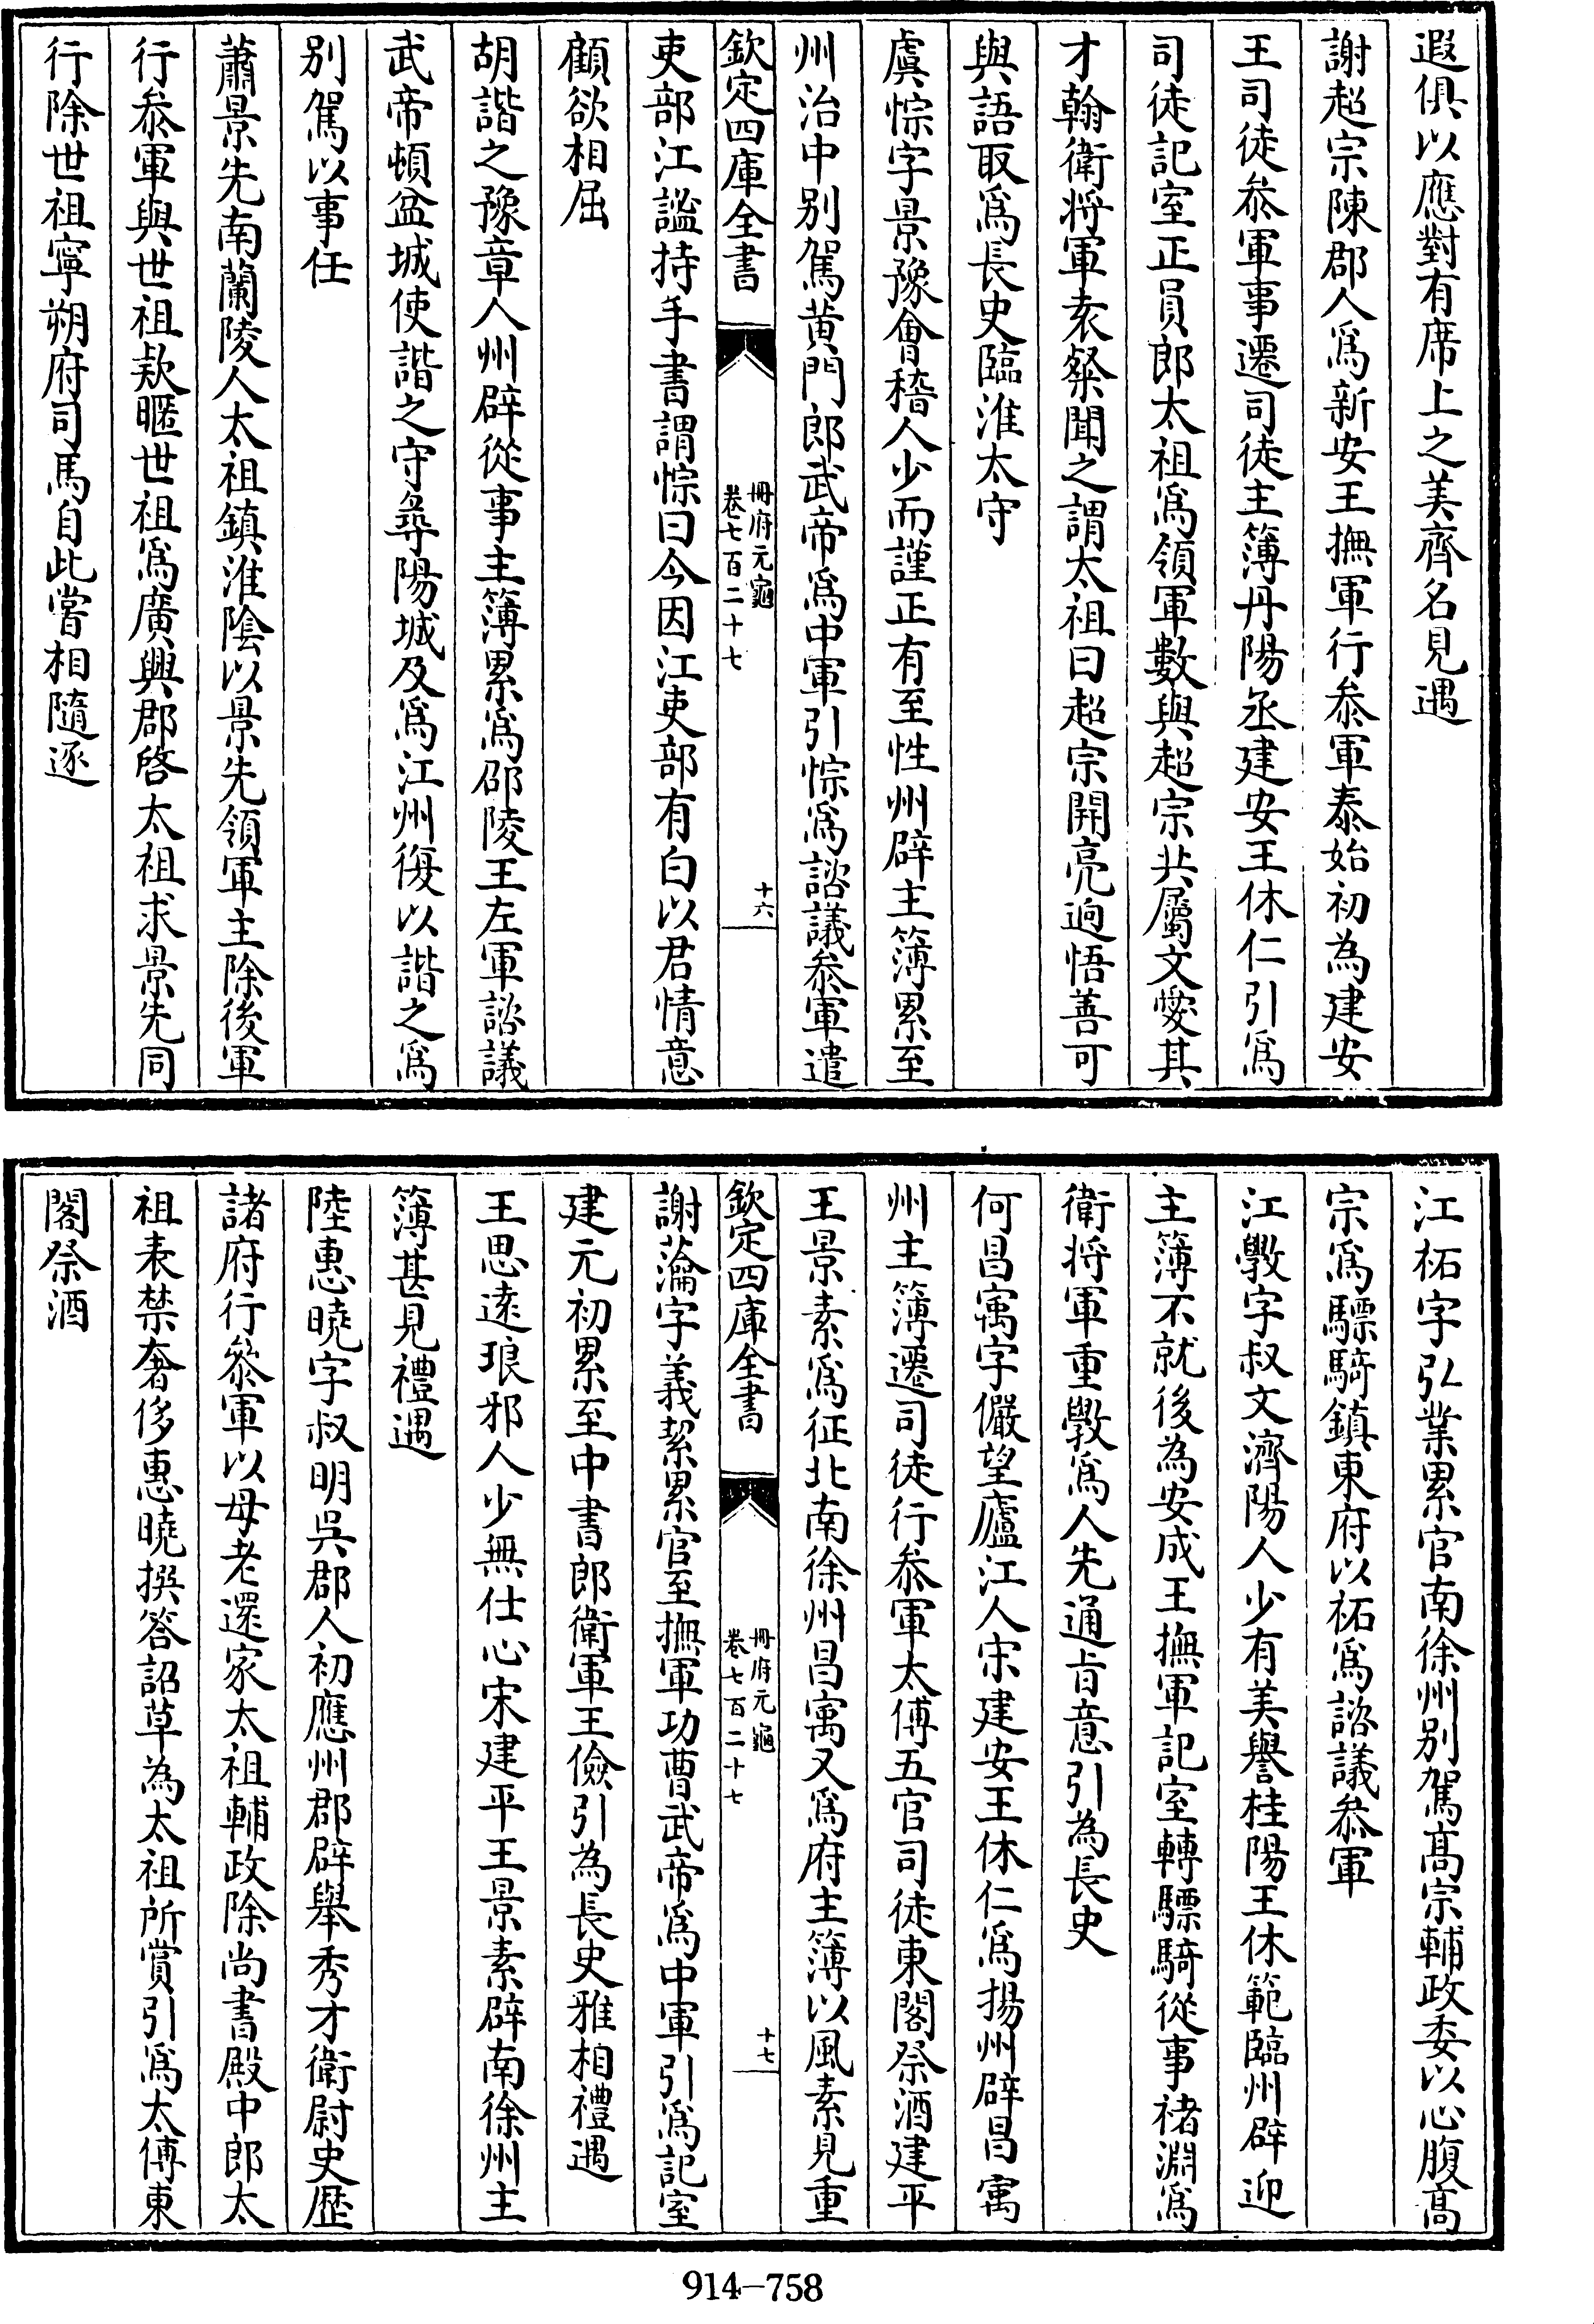 遐俱以應對有席上之美齊名見遇
謝超宗陳郡人爲新安王撫軍行叅軍泰始初為建安
王司徒叅軍事遷司徒主簿丹陽丞建安王休仁引爲
司徒記室正員郎太祖爲領軍數與超宗共屬文愛其
才翰衛将軍袁粲聞之謂太祖曰超宗開亮逈悟善可
與語取爲長史臨淮太守
虞悰字景豫會稽人少而謹正有至性州辟主簿累至
州治中别駕黄門郎武帝爲中軍引悰爲諮議叅軍遣
欽定四庫全書
冊府元龜
卷七百二十七
十六
吏部江謐持手書謂悰曰今因江吏部有白以君情意
顧欲相屈
胡諧之豫章人州辟從事主簿累爲邵陵王左軍諮議
武帝頓盆城使諧之守尋陽城及爲江州復以諧之爲
别駕以事任
蕭景先南蘭陵人太祖鎮淮隂以景先領軍主除後軍
行叅軍與世祖欵暱世祖爲廣興郡啓太祖求景先同
行除世祖寧朔府司馬自此嘗相隨逐
江祏字弘業累官南徐州别駕髙宗輔政委以心腹髙
宗爲驃騎鎮東府以祏爲諮議叅軍
江斅字叔文濟陽人少有美譽桂陽王休範臨州辟迎
主簿不就後為安成王撫軍記室轉驃騎從事褚淵爲
衛将軍重斅爲人先通㫖意引為長史
何昌㝢字儼望廬江人宋建安王休仁爲揚州辟昌㝢
州主簿遷司徒行叅軍太傅五官司徒東閣祭酒建平
王景素爲征北南徐州昌㝢又爲府主簿以風素見重
欽定四庫全書
冊府元龜
卷七百二十七
十七
謝瀹字義絜累官至撫軍功曹武帝爲中軍引爲記室
建元初累至中書郎衛軍王儉引為長史雅相禮遇
王思逺琅邪人少無仕心宋建平王景素辟南徐州主
簿甚見禮遇
陸惠曉字叔明吳郡人初應州郡辟舉秀才衛尉史歴
諸府行叅軍以母老還家太祖輔政除尚書殿中郎太
祖表禁奢侈惠曉撰答詔草為太祖所賞引爲太傅東
閣祭酒
914—758